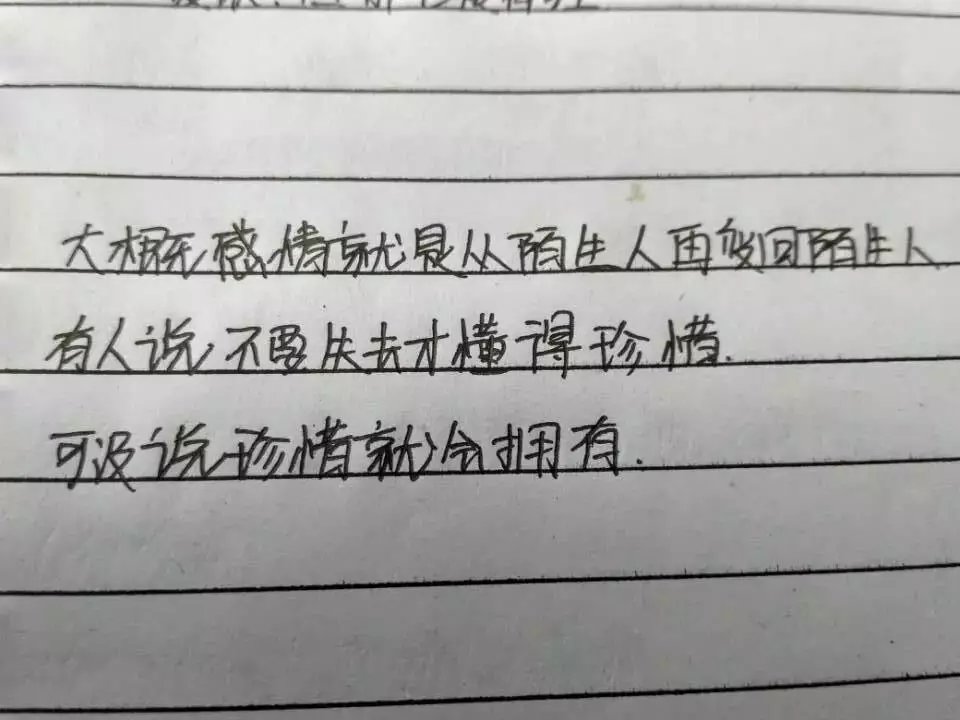 大概感情就是从陌生人再变回陌生人
有人说不要失去才懂得珍惜.
可没说珍惜就会拥有.